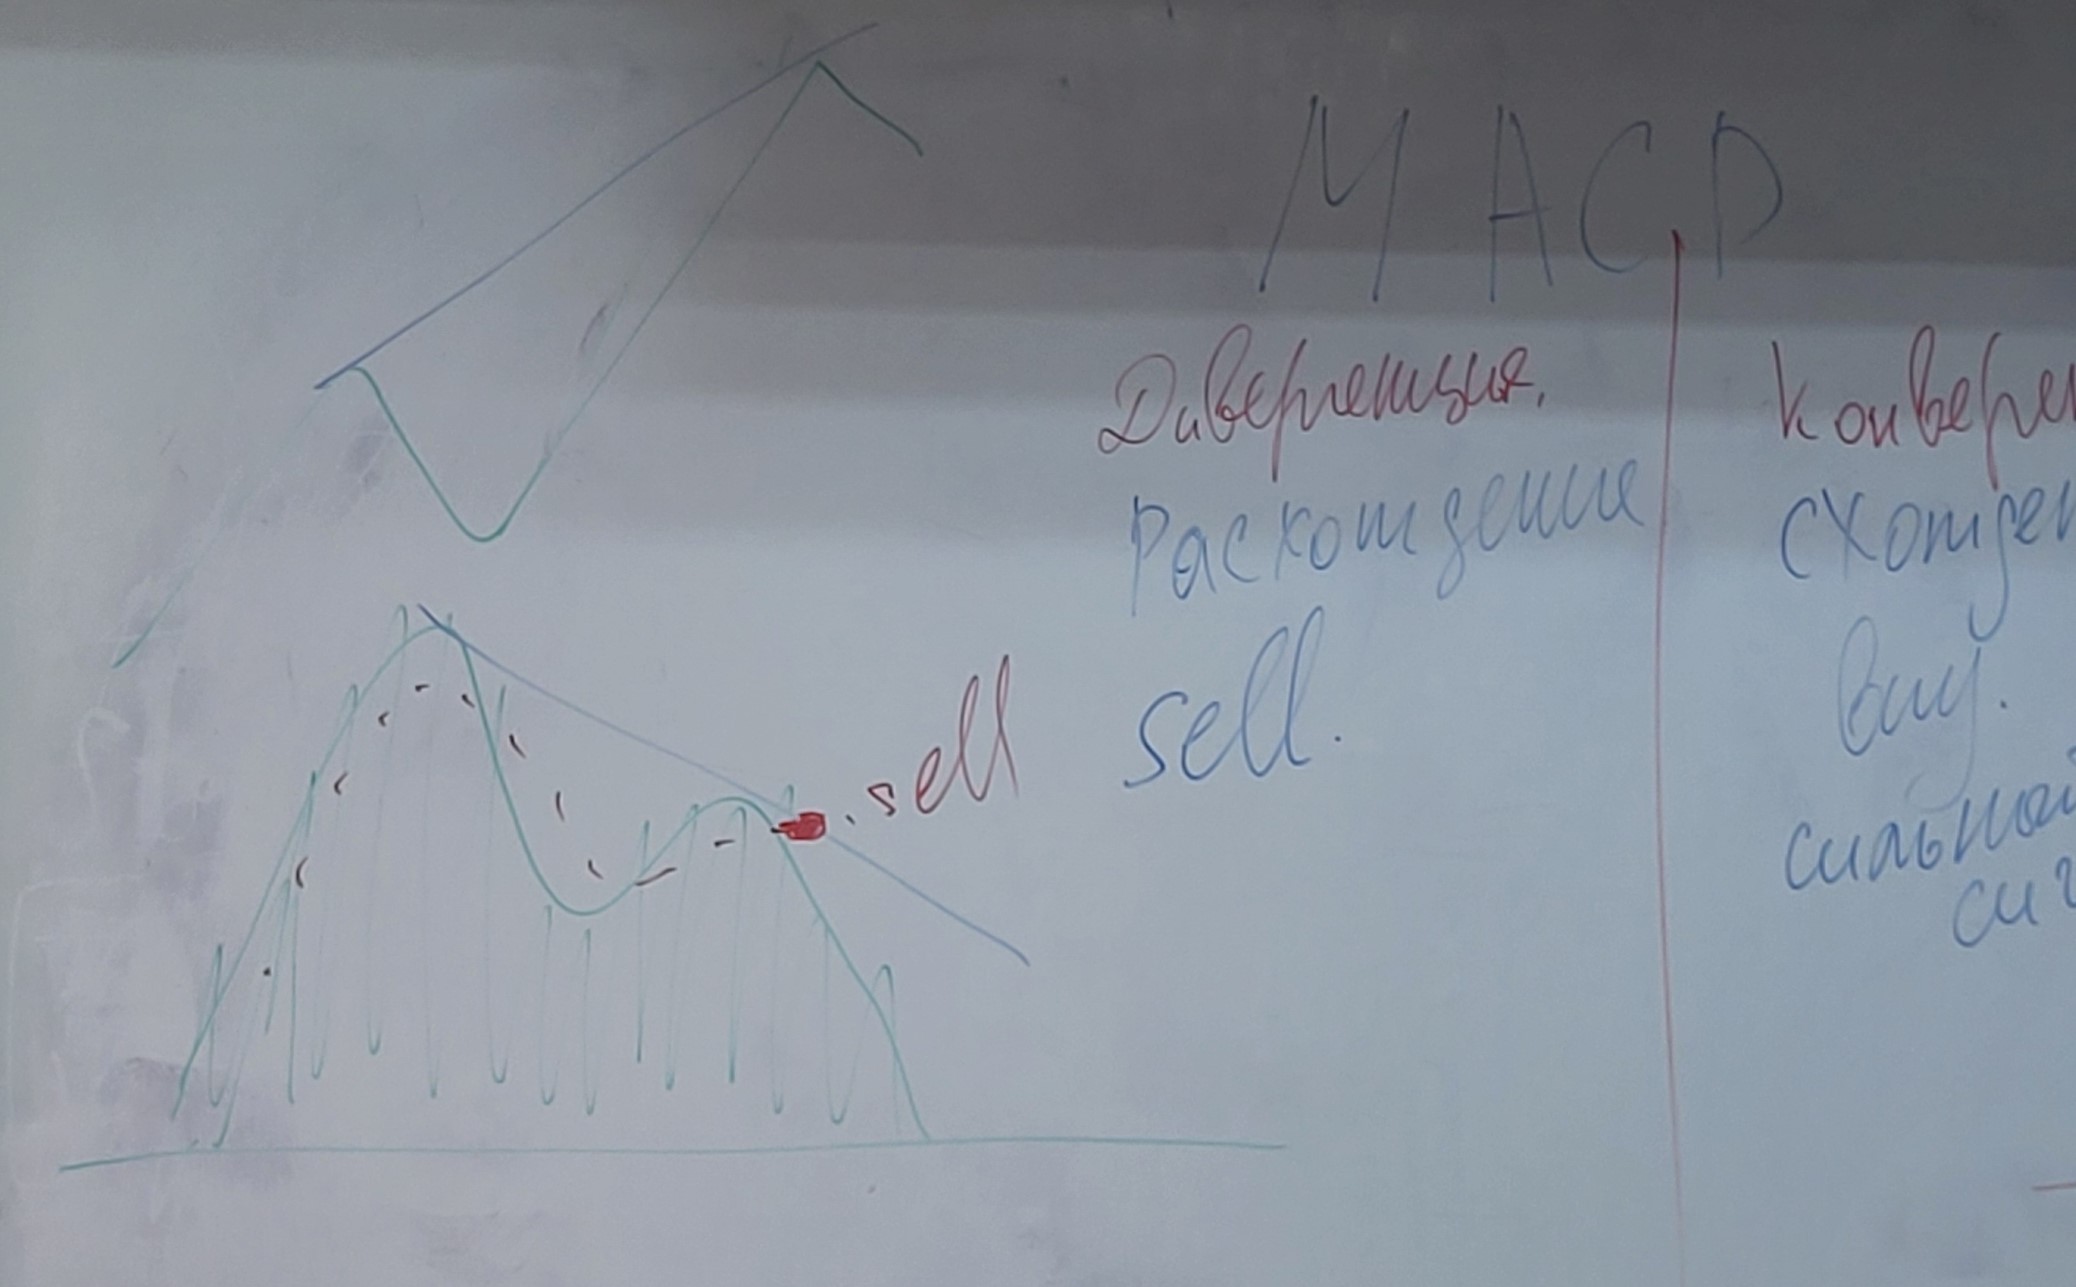 MACD
Дивергенция.
Расхождение
sell.
sell
Конверген
схожден
buy.
сильной
сиг